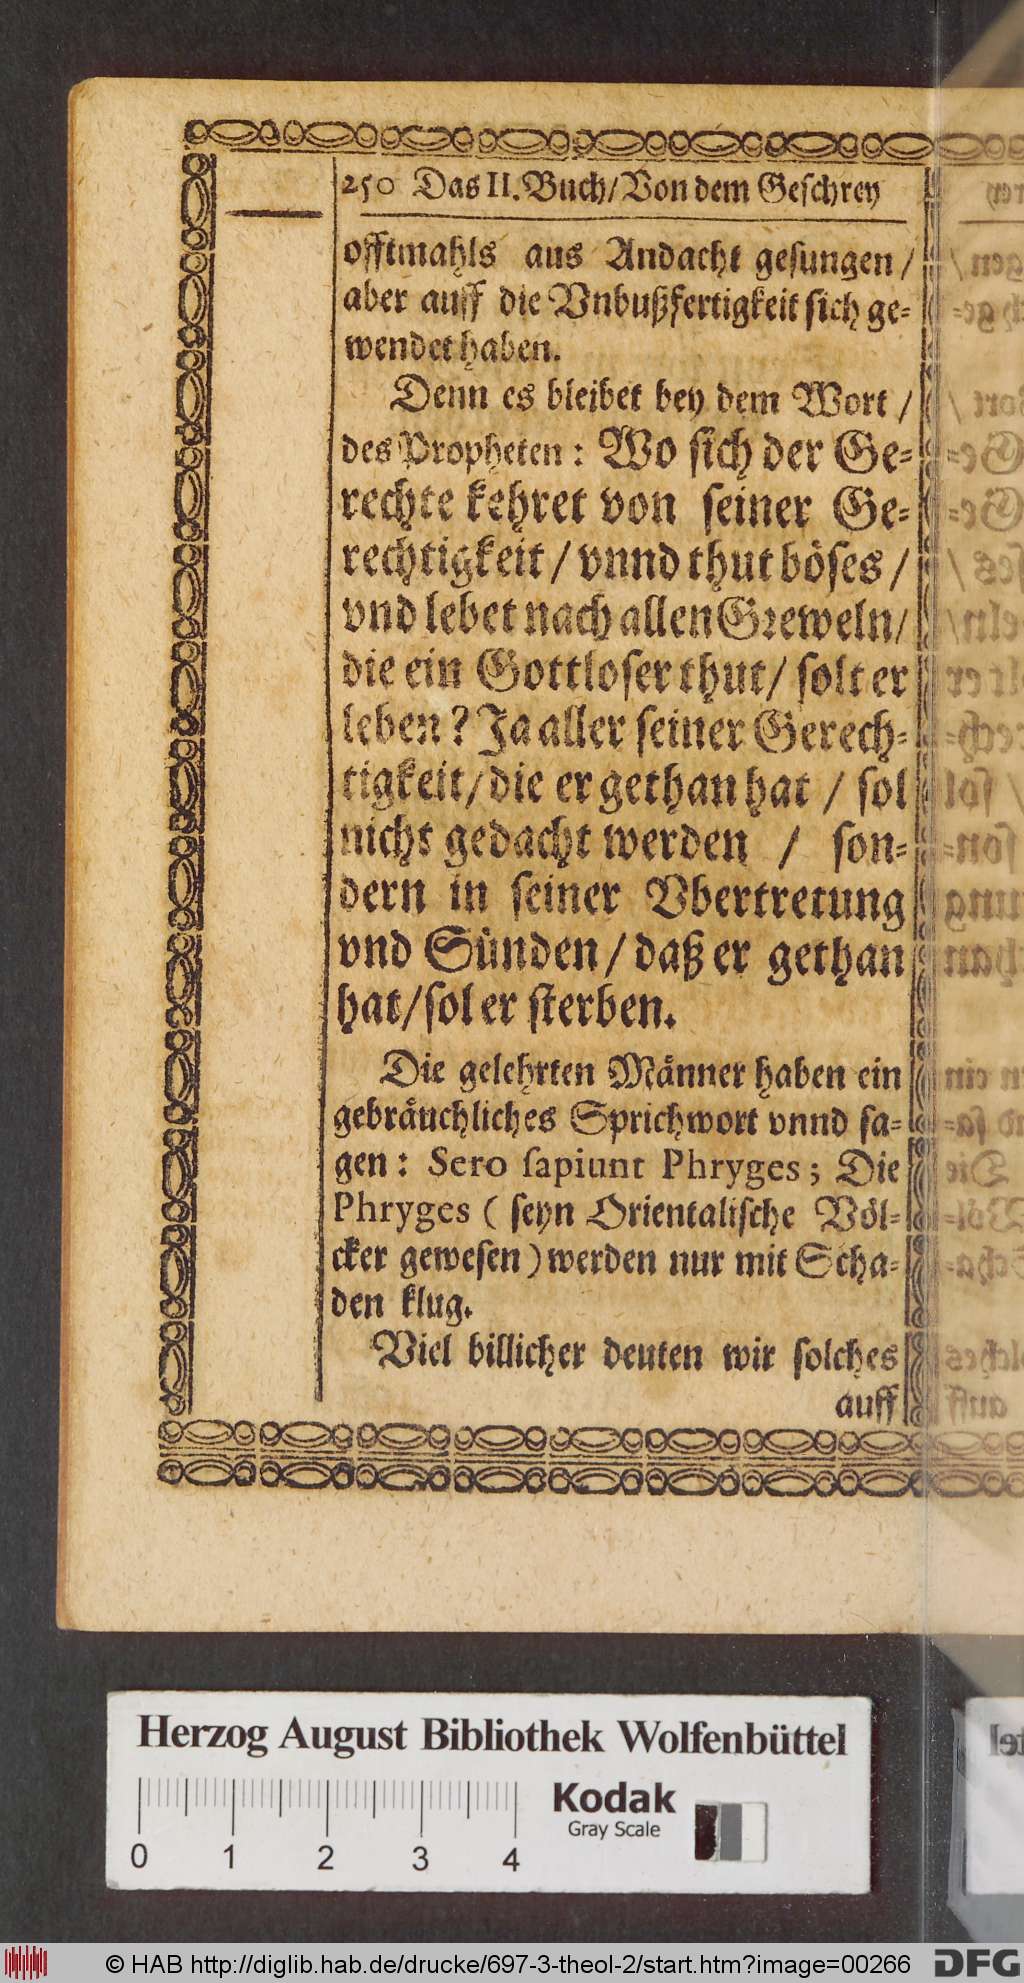 250 Das II. Buch/ Von dem Geschrey
offtmahls aus Andacht gesungen/
aber auff die Vnbußfertigkeit sich ge-
wendet haben.
Denn es bleibet bey dem Wort /
des Propheten: Wo sich der Ge-
rechte kehret von seiner Ge-
rechtigkeit / vnnd thut böses /
vnd lebet nach allen Greweln/
die ein Gottloser thut/ solt er
leben? Ja aller seiner Gerech-
tigkeit/ die er gethan hat / sol
nicht gedacht werden / son-
dern in seiner Vbertretung
vnd Sünden/ daß er gethan
hat/ sol er sterben.
Die gelehrten Männer haben ein
gebräuchliches Sprichwort vnnd sa-
gen: Sero sapiunt Phryges; Die
Phryges ( seyn Orientalische Völ-
cker gewesen ) werden nur mit Scha-
den klug.
Viel billicher deuten wir solches
auff
Herzog August Bibliothek Wolfenbüttel
Kodak
Gray Scale
0 1 2 3 4
© HAB http://diglib.hab.de/drucke/697-3-theol-2/start.htm?image=00266
DFG